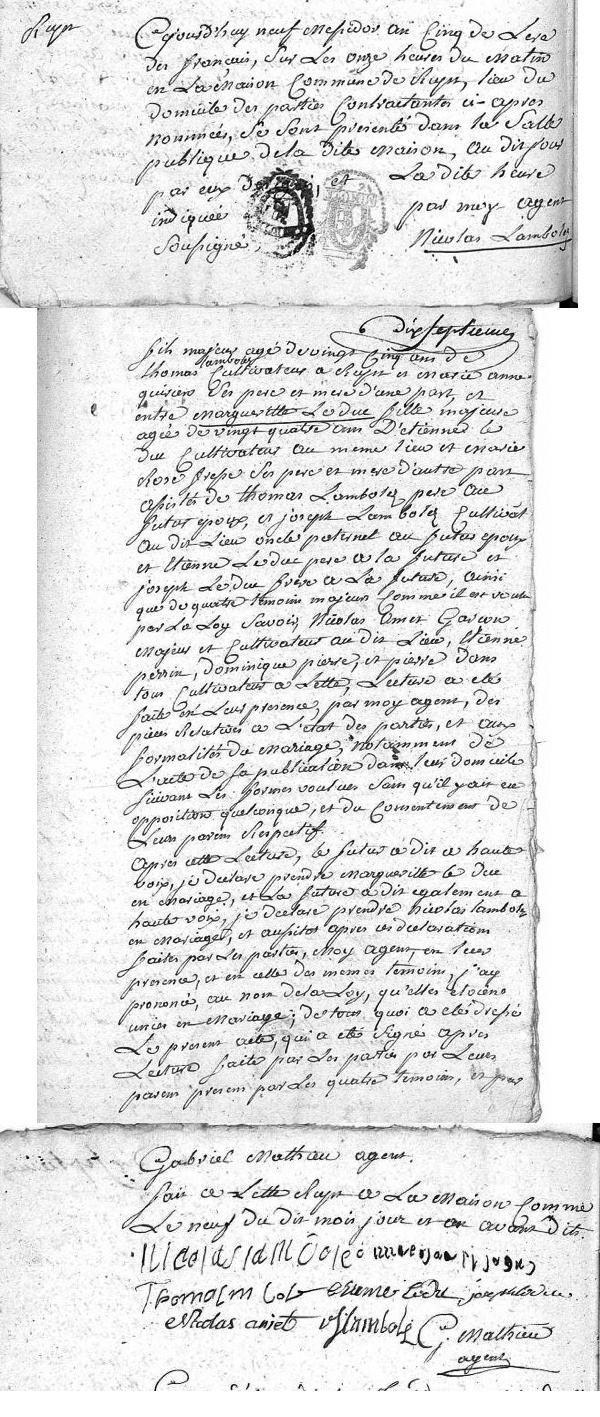 Rupt
Cejourd'huy neuf Messidor an Cinq de Lere
des français, sur Les onze heures du Matin
en La Maison Commune de Rupt, lieu du
domicile des parties Contractantes ci-apres
nommées, se sont presenté dans la Salle
publique de la dite Maison, au dit jour
par eux et La dite heure
indiquée par moy agent
sousigné, Nicolas Lambolez
6 dix septieme
fils majeur agé de vingt Cinq ans de
thomas Lambolez Cultivateur a Rupt et Marie anne
ses pere et mere d'une part, et
entre Margueritte Le duc fille majeure
agée de vingt quatre ans D'etienne le
duc Cultivateur au meme lieu et Marie
Rose ses pere et mere d'autre part
assistés de thomas Lambolez pere au
futur epoux, et joseph Lambolez Cultivat
au dit Lieu oncle paternel au futur epoux
et Etienne Leduc pere a la future et
joseph Leduc frere a La future, ainsi
que de quatre temoins majeurs Comme il est voulu
par La Loy Savoir, Nicolas Garcon
Majeur et Cultivateur au dit Lieu, Etienne
perrin, dominique pierre, et pierre
tous Cultivateurs a Lette, Lecture a eté
faite en Leur presence, par moy agent, des
pieces Relatives a L'etat des parties, et aux
formalités du Mariage, notamment de
L'acte de sa publication dans leur domicile
suivant Les formes voulues Sans qu'il y ait eu
opposition quelconque, et du Consentement de
Leurs parens Respectif.
apres cette Lecture, le futur a dit a haute
voix, je declare prendre Margueritte le duc
en Mariage, et La future a dit egalement a
haute voix, je declare prendre Nicolas Lambolez
en Mariage, et aussitot apres ces declarations
faites par Les parties, Moy agent, en leur
presence, et en celle des memes temoins, j'ay
prononcé, au nom de La Loy, qu'elles etoient
unies en Mariage; de tout quoi a eté dressé
Le present acte, qui a eté signé apres
Lecture faite par Les parties par Leurs
parens presens par Les quatre temoins, et par
Gabriel Mathieu agent.
fait a Lette Rupt a La Maison Comme
Le neuf du dit mois jour et an avant dits
Nicolas
Thomas etienne Leduc joseph
Nicolas J Lambolé G. Mathieu
agent